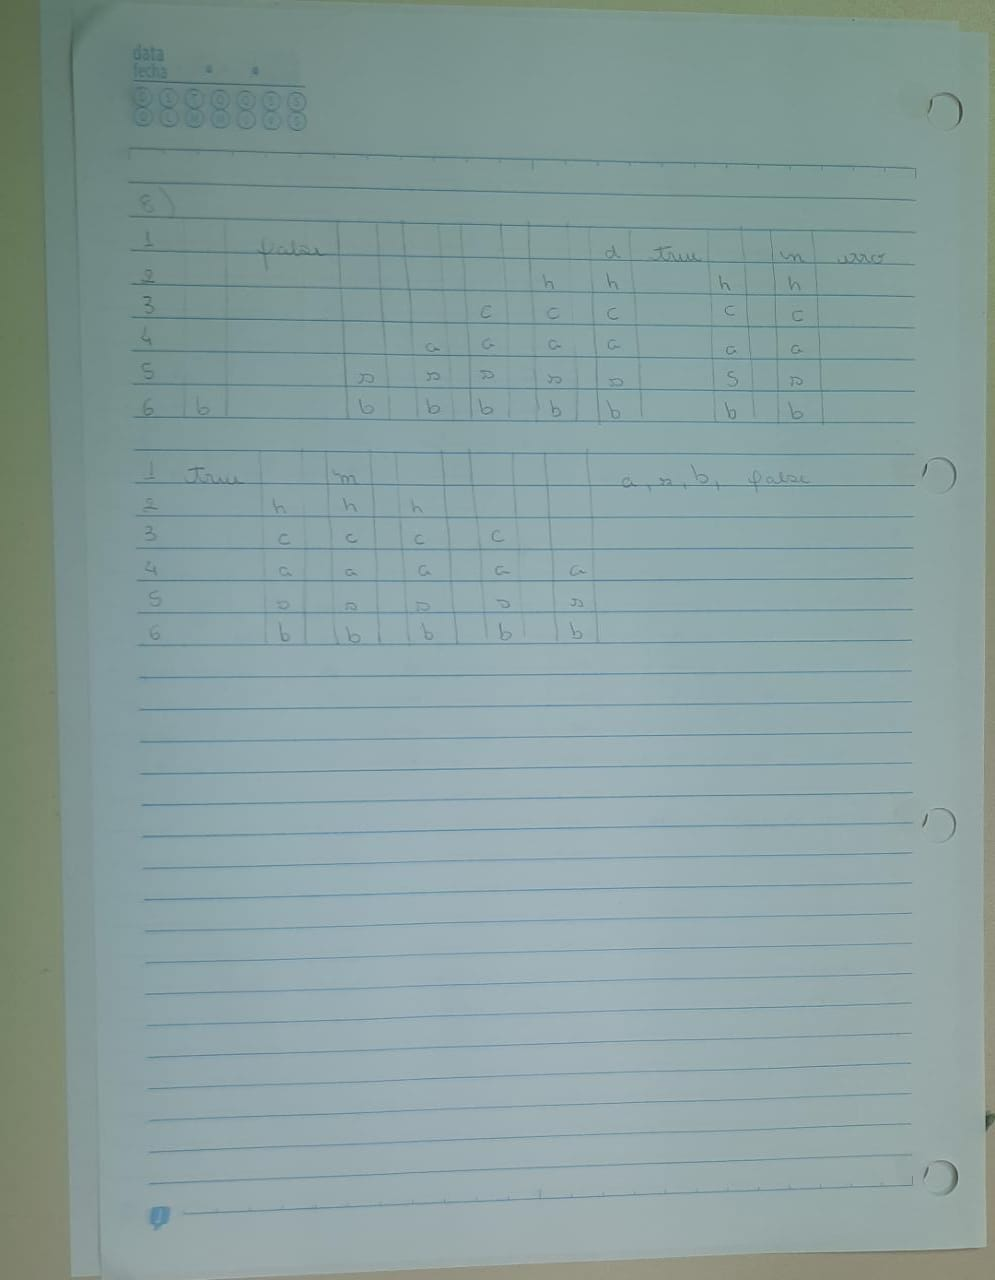 data
fecha
8)
1 false d true m erro
2 h h h h
3 c c c c c
4 a a a a a a
5 s s s s s S s
6 b b b b b b b b
1 true m a, s, b, false
2 h h h
3 c c c c
4 a a a a a
5 s s s s s
6 b b b b b